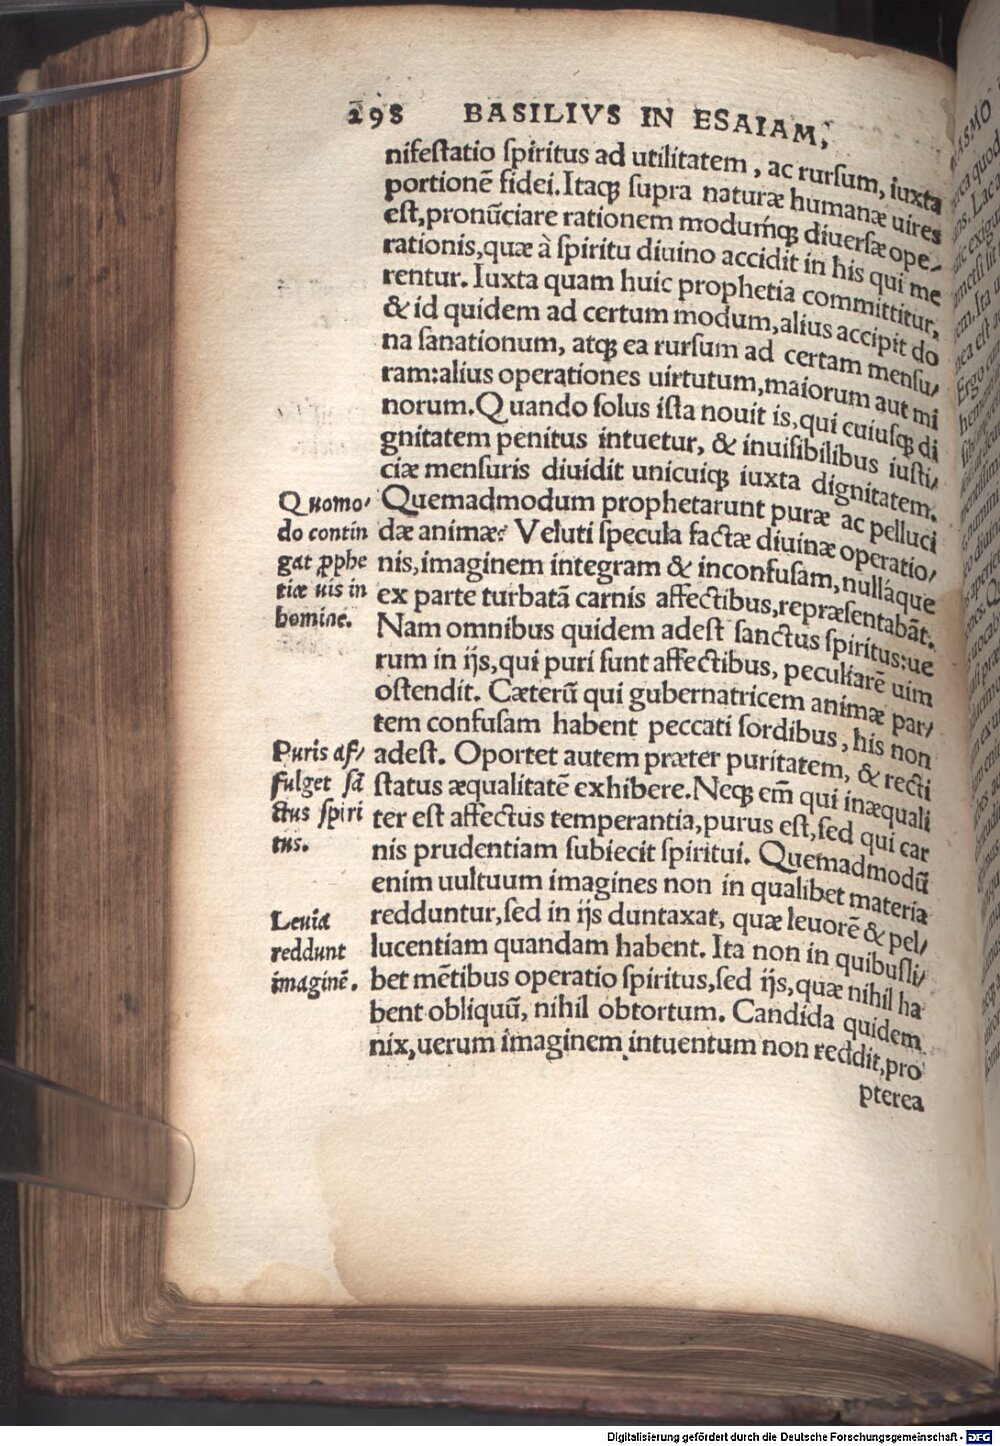 298 BASILIVS IN ESAIAM,
nifestatio spiritus ad utilitatem, ac rursum, iuxta
portionē fidei. Itaq; supra naturæ humanæ uires
est, pronūciare rationem modumq́; diuersæ ope-
rationis, quæ à spiritu diuino accidit in his qui me
rentur. Iuxta quam huic prophetia committitur,
& id quidem ad certum modum, alius accipit do
na sanationum, atq; ea rursum ad certam mensu-
ram: alius operationes uirtutum, maiorum aut mi
norum. Quando solus ista nouit is, qui cuiusq; di
gnitatem penitus intuetur, & inuisibilibus iusti-
ciæ mensuris diuidit unicuiq; iuxta dignitatem.
Quemadmodum prophetarunt puræ ac pelluci
dæ animæ? Veluti specula factæ diuinæ operatio-
nis, imaginem integram & inconfusam, nullàque
ex parte turbatā carnis affectibus, repræsentabāt.
Nam omnibus quidem adest sanctus spiritus: ue
rum in ijs, qui puri sunt affectibus, peculiarē uim
ostendit. Cæterū qui gubernatricem animæ par-
tem confusam habent peccati sordibus, his non
adest. Oportet autem præter puritatem, & recti
status æqualitatē exhibere. Neq; em̄ qui inæquali
ter est affectus temperantia, purus est, sed qui car
nis prudentiam subiecit spiritui. Quemadmodū
enim uultuum imagines non in qualibet materia
redduntur, sed in ijs duntaxat, quæ leuorē & pel-
lucentiam quandam habent. Ita non in quibusli-
bet mētibus operatio spiritus, sed ijs, quæ nihil ha
bent obliquū, nihil obtortum. Candida quidem
nix, uerum imaginem intuentum non reddit, pro
pterea
Quomo-
do contin
gat ꝓphe
tiæ uis in
homine.
Puris af-
fulget sā
ctus spiri
tus.
Leuia
reddunt
imaginē.
Digitalisierung gefördert durch die Deutsche Forschungsgemeinschaft - DFG